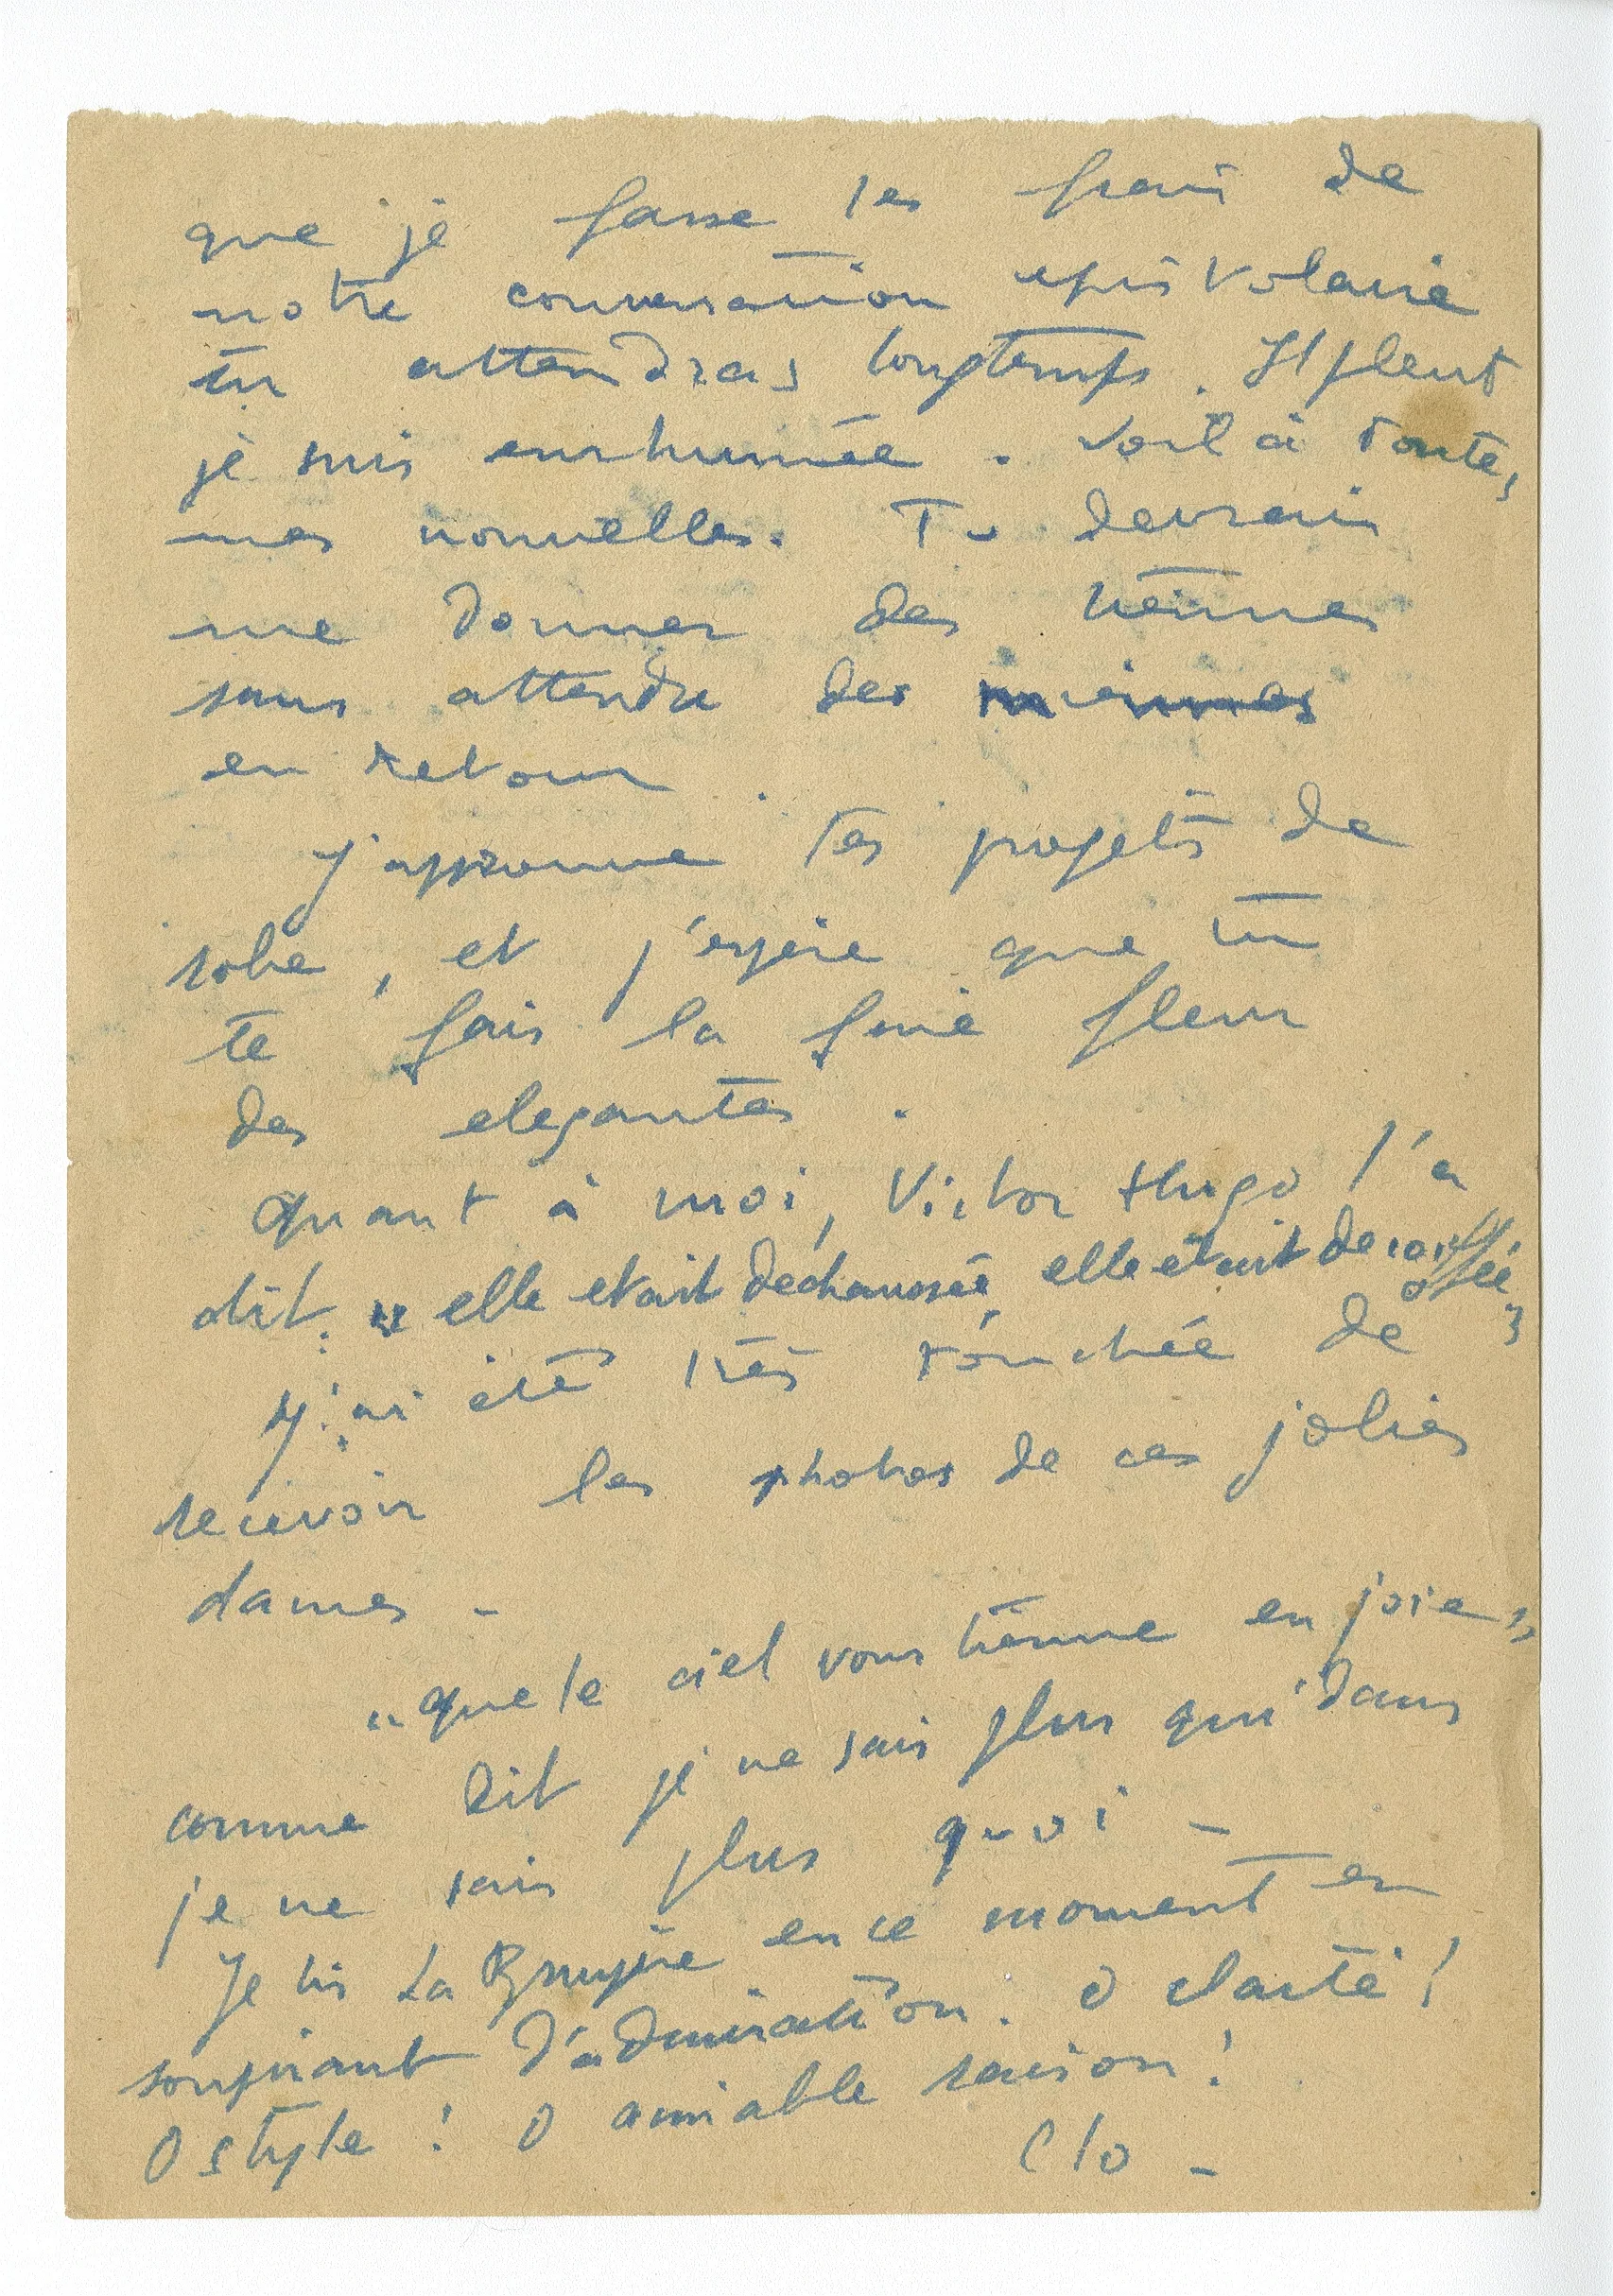 que je fasse les frais de
notre conversation epistolaire
tu attendras longtemps. Il pleut
je suis enrhumée. Voilà toutes
mes nouvelles. Tu devrais
me donner des tiennes
sans attendre des miennes
en retour.
J'approuve tes projets de
robe, et j'espère que tu
te fais la fine fleur
des elegantes.
quant à moi, Victor Hugo l'a
dit: "elle etait dechaussée, elle etait decoiffée"
J'ai été très touchée de
recevoir les photos de ces jolies
dames -
"que le ciel vous tienne en joie"
comme dit je ne sais plus qui dans
je ne sais plus quoi -
Je lis La Bruyère en ce moment en
soupirant d'admiration. O clarté!
O style! O aimable raison!
Clo -